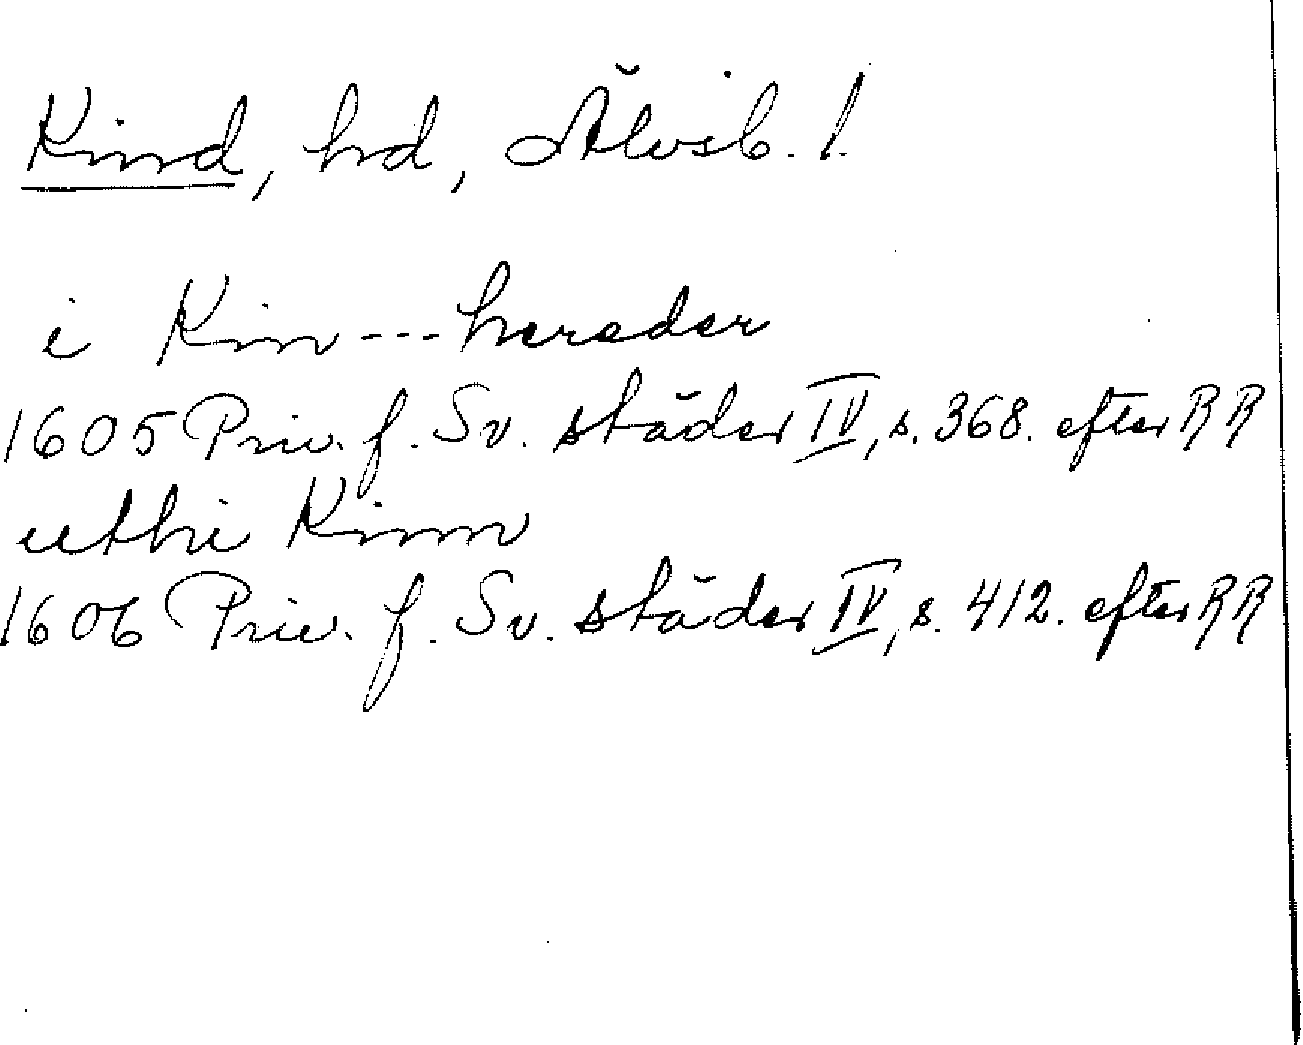 Kind, hd, Älvsb. l.
i Kin---herader
1605 Priv. f. Sv. städer IV, s. 368. efter RR
uthi Kinn
1606 Priv. f. Sv. städer IV, s. 412. efter RR